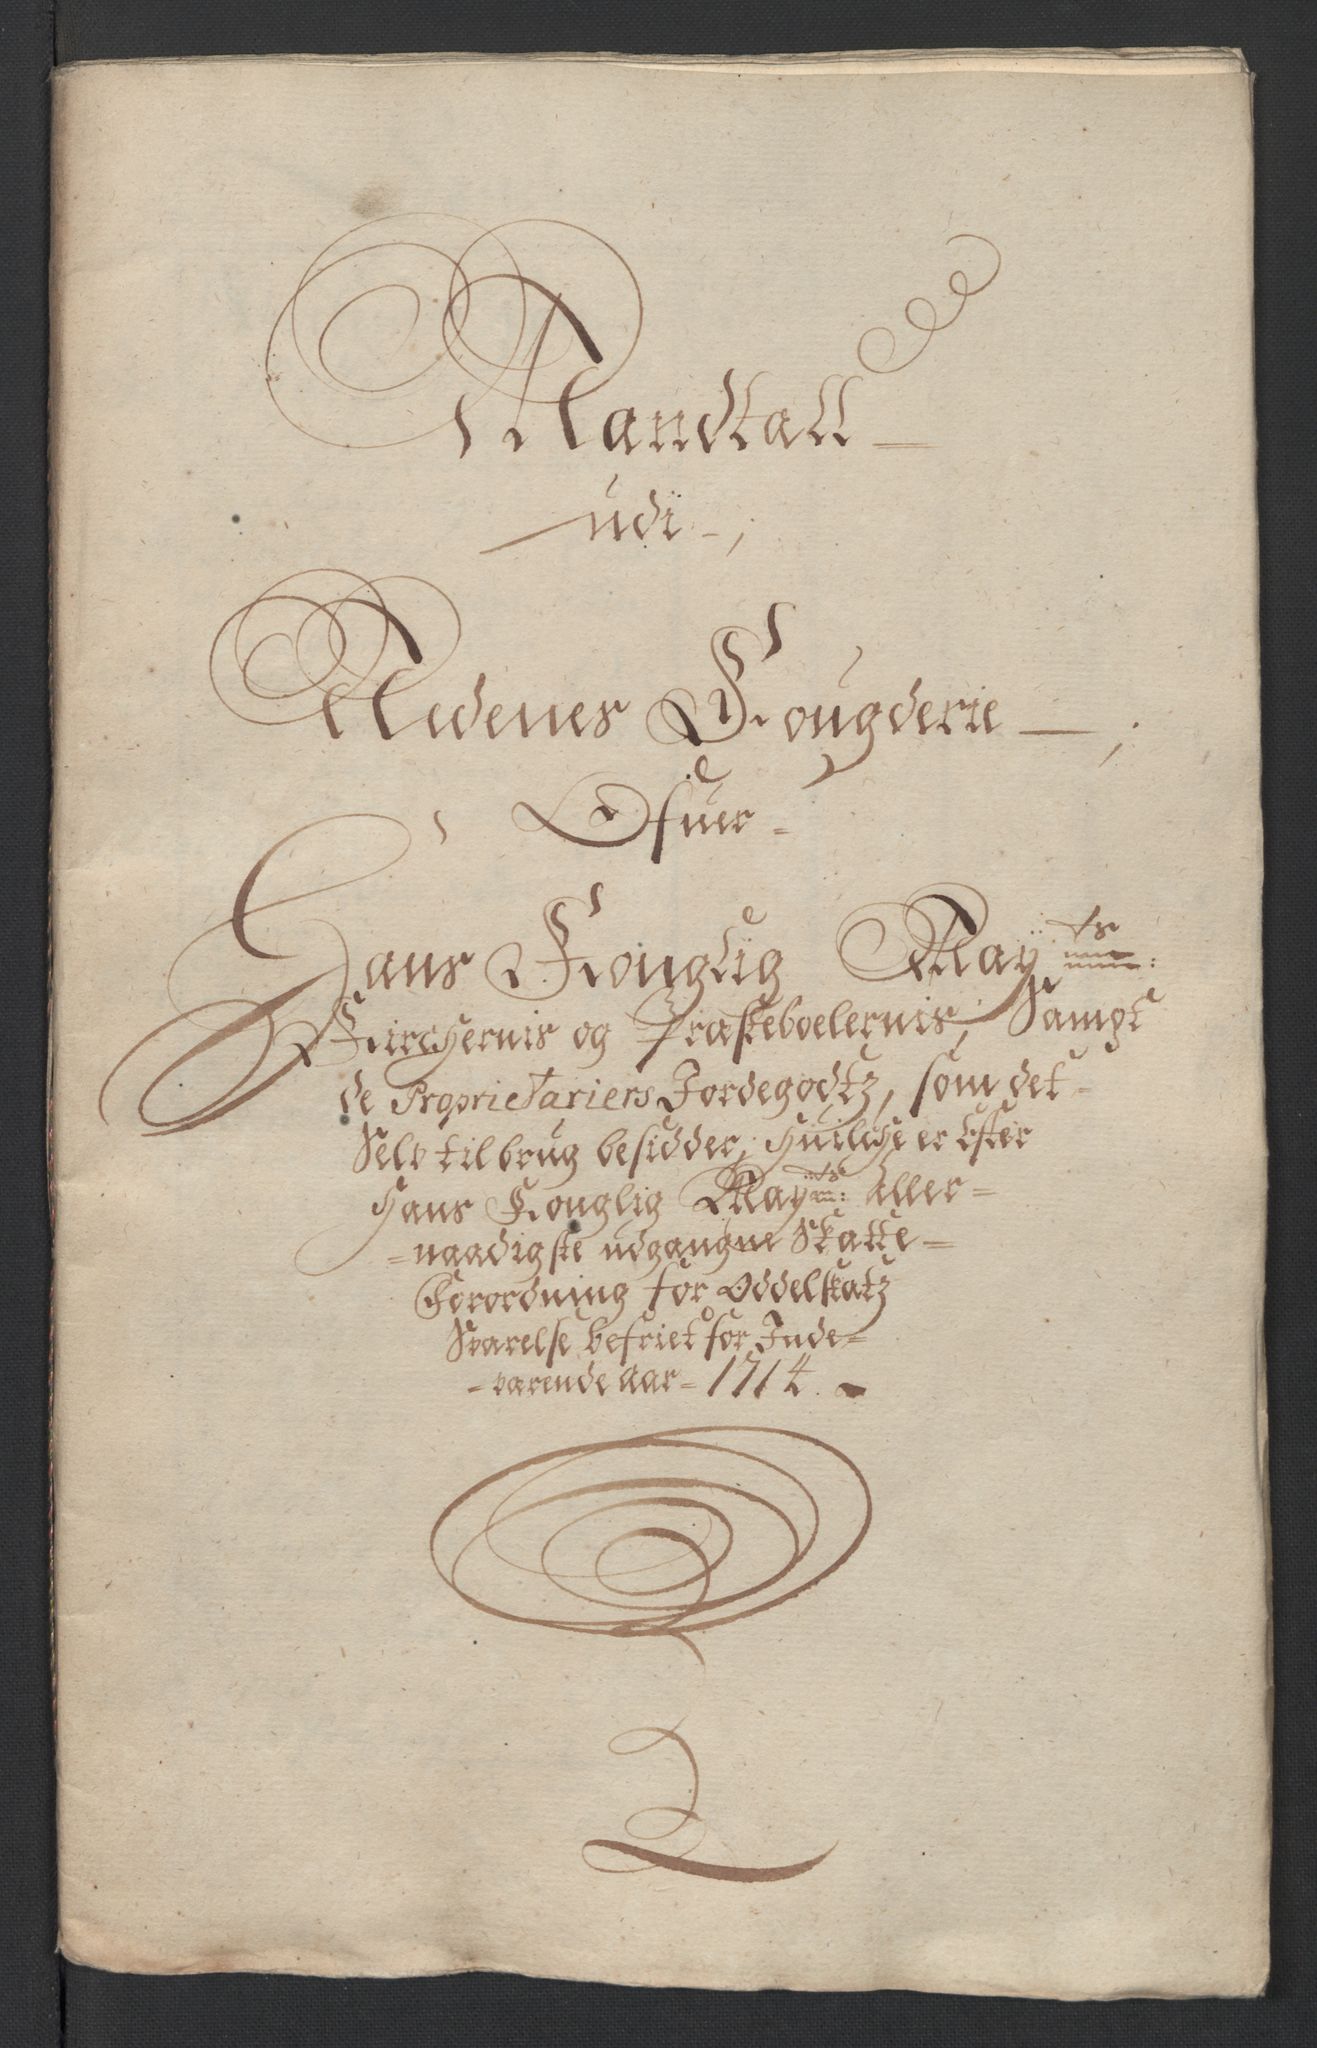 Mandtall
udi,
Nedenes Fougderie
Ofuer
Hans Konglig May:ts
Kirchernis og Præsteboelernis, Sampt
de Proprietariers Jordegodtz, som det
Selv til brug besidder, huilche er Efter
Hans Konglig May:ts Aller=
=naadigste udgangne Skatte=
Forordning for Oddelskatz
Svarelse befriet for Inde=
=værende Aar= 1714.